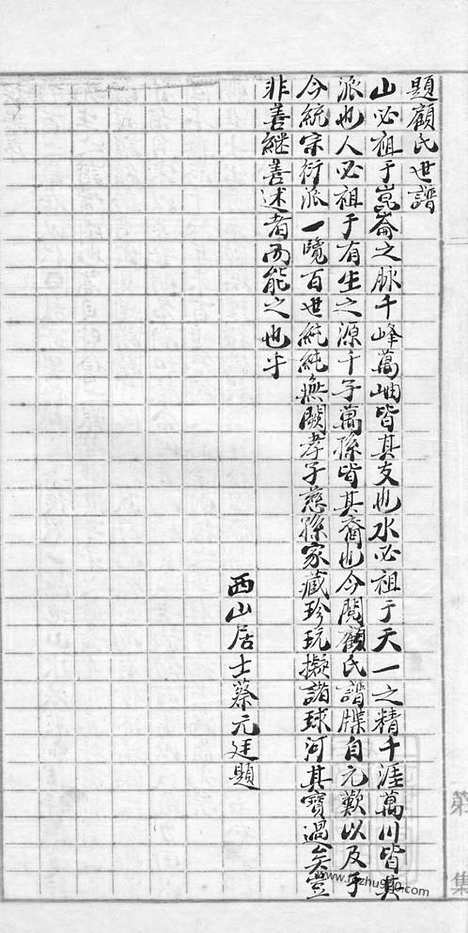 題顧氏世譜
山必祖于崑崙之脉千峰萬岫皆其支也水必祖于天一之精千涯萬川皆其
派也人必祖于有生之源千子萬孫皆其裔也今閱顧氏譜牒自元歎以及乎
今統宗衍派一覽百世純純無闕孝子慈孫家藏珍玩擬諸球河其寶過矣豈
非善繼善述者而能之也乎
西山居士蔡元廷題
第
集